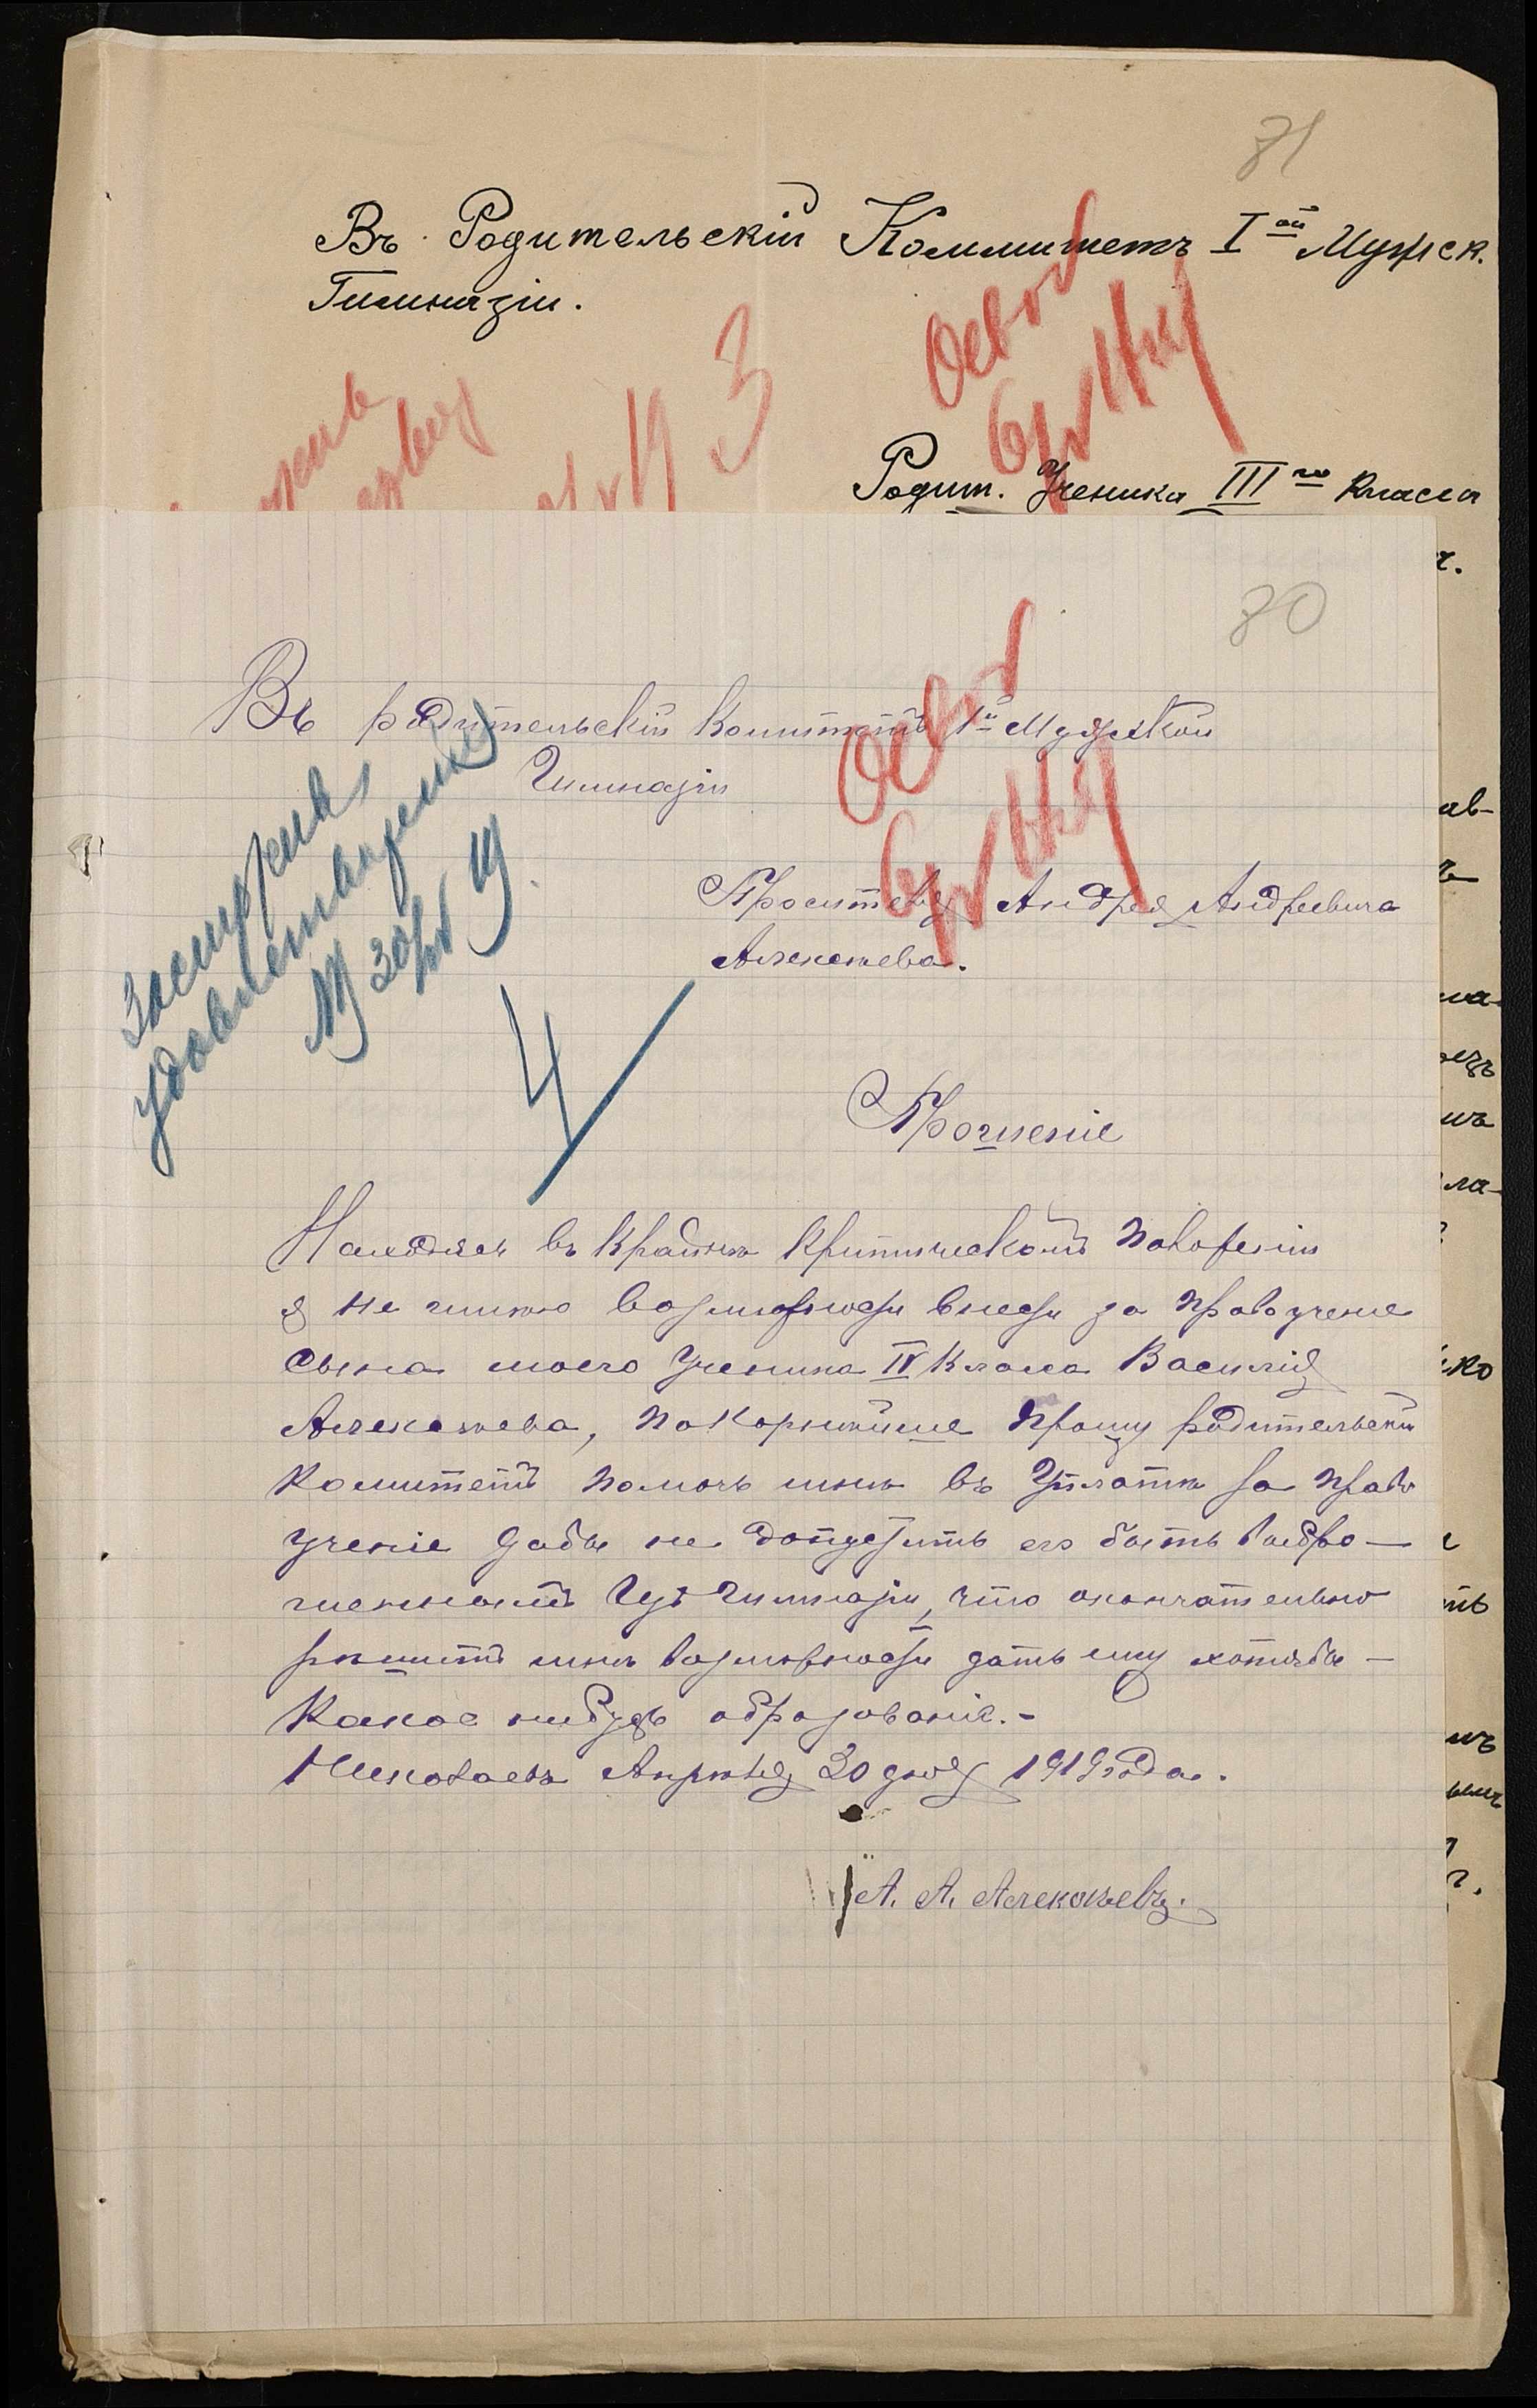 71
Въ Родительскiй Коммитетъ I ой Мужск.
Гимназiи.
3
Освоб
Родит. Ученика III го класса
70
Въ родительскiй комитетъ 1й Мужской
Гимназiи
Освоб
Заслуживаетъ
удовлетворенiя
30/IV 19
4
Просителя Андрея Андреевича
Алексеева.
Прошенiе
Находясь въ крайнѣ критическомъ положенiи
я не имѣю возможности внести за право учение
сына моего ученика IV класса Василiя
Алексѣева, покорнѣйше прошу родительскiй
комитетъ помочь мнѣ въ уплатѣ за право
ученiе дабы не допустить его быть выбро-
шеннымъ изъ гимназiи, что окончательно
рѣшитъ мнѣ возможности дать ему хотябы-
какое нибудь образованiе.-
Николаевъ Апрѣля 30 дня 1919 года.
А. А. Алексѣевъ.